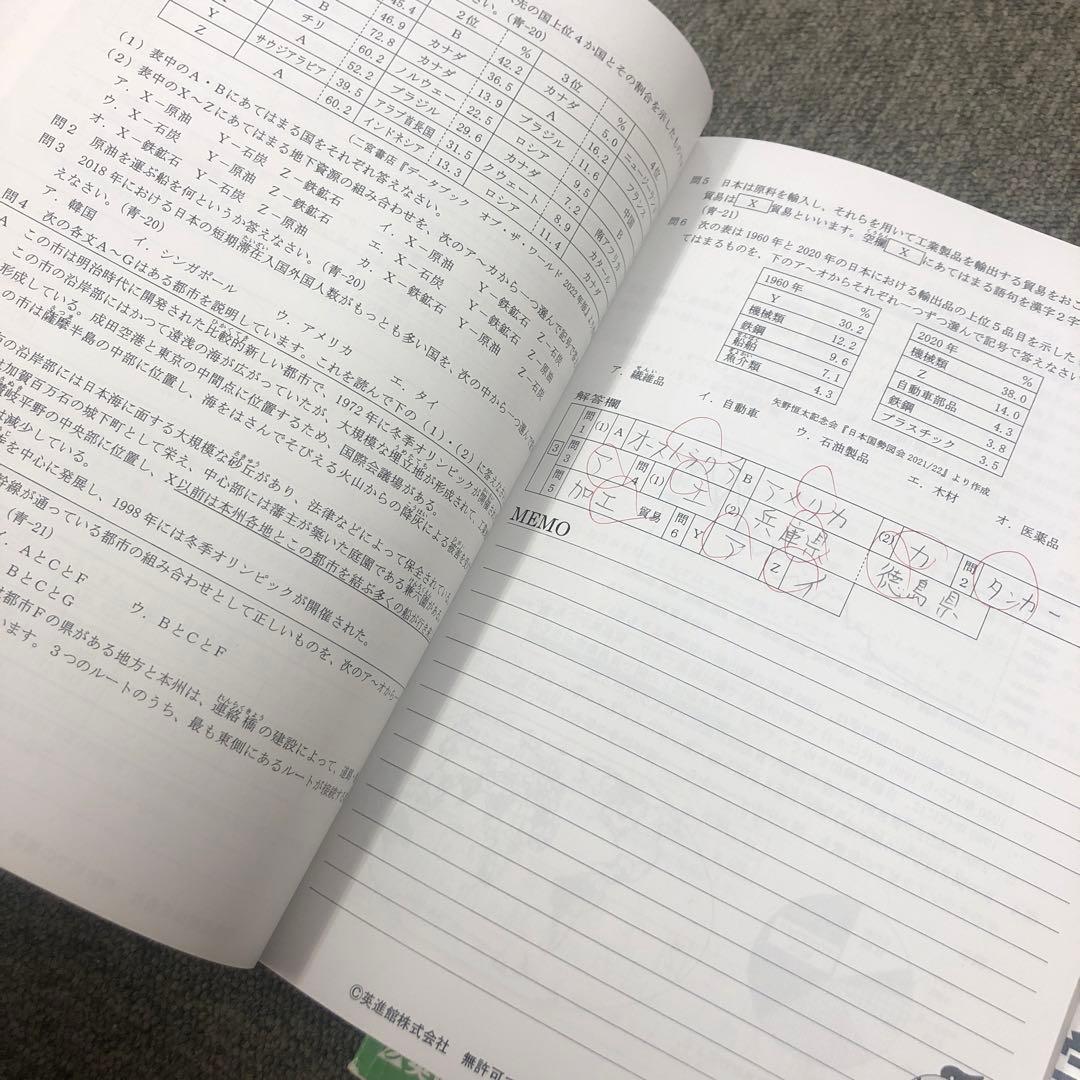 先の国上位4か国とその割合を示したもの
さい。(青-20)
2位 % 3位 % 4位
45.4 カナダ 42.2 カナダ 5.0 ニュージーラン
B 46.9 カナダ 36.5 A 16.2 フランス
X カナダ 60.8 ノルウェー 13.9 ブラジル 11.6 中国
Y チリ 72.8 ブラジル 22.5 ロシア 9.5 B
Z A 52.2 アラブ首長国 29.6 カナダ 7.2 南アフリカ
サウジアラビア 39.5 インドネシア 31.5 クウェート 8.9 カタール
A 60.2 13.3 ロシア 11.4 カナダ
(二宮書店『データブック オブ・ザ・ワールド 2022年版』より
(1) 表中のA・Bにあてはまる国をそれぞれ答えなさい。
(2) 表中のX~Zにあてはまる地下資源の組み合わせを、次のア~カから一つ選んで記号で答
ア.X-原油 Y-石炭 Z-鉄鉱石 イ.X-原油 Y-鉄鉱石 Z-石炭
ウ.X-石炭 Y-原油 Z-鉄鉱石 エ.X-石炭 Y-鉄鉱石 Z-原油
オ.X-鉄鉱石 Y-石炭 Z-原油 カ.X-鉄鉱石 Y-原油 Z-石炭
問2 原油を運ぶ船を何というか答えなさい。(青-20)
問3 2018年における日本の短期滞在入国外国人数がもっとも多い国を、次の中から一つ選んで
えなさい。(青-20)
ア.韓国 イ.シンガポール ウ.アメリカ エ.タイ
問4 次の各文A~Gはある都市を説明しています。これを読んで下の(1)・(2)に答えなさ
A この市は明治時代に開発された比較的新しい都市で、1972年に冬季オリンピックが開催され
この市の沿岸部にはかつて遠浅の海が広がっていたが、大規模な埋立地が形成されて、工業
形成している。成田空港と東京の中間点に位置するため、国際会議場がある。
の市は薩摩半島の中部に位置し、海をはさんでそびえる火山からの降灰による被害を
の沿岸部には日本海に面する大規模な砂丘があり、法律などによって保全されている
加賀百万石の城下町として栄え、中心部には藩主が築いた庭園である兼六園があ
讃岐平野の中央部に位置し、X以前は本州各地とこの都市を結ぶ多くの船が行き
減少している。
を中心に発展し、1998年には冬季オリンピックが開催された。
幹線が通っている都市の組み合わせとして正しいものを、次のア~オから一
(青-21)
イ.AとCとF
BとCとG ウ.BとCとF
都市Fの県がある地方と本州は、連絡橋の建設によって、道路・
います。3つのルートのうち、最も東側にあるルートが接続する
問5 日本は原料を輸入し、それらを用いて工業製品を輸出する貿易をおこ
貿易は X 貿易といいます。空欄 X にあてはまる語句を漢字2字
(青-21)
問6 次の表は1960年と2020年の日本における輸出品の上位5品目を示した
てはまるものを、下のア~オからそれぞれ一つずつ選んで記号で答えなさい
1960年 %
Y 30.2
機械類 12.2
鉄鋼 9.6
船舶 7.1
魚介類 4.3
2020年 %
機械類 38.0
Z 14.0
自動車部品 4.3
鉄鋼 3.8
プラスチック 3.5
矢野恒太記念会『日本国勢図会 2021/22』より作成
ア.繊維品 イ.自動車 ウ.石油製品 エ.木材 オ.医薬品
解答欄
3 問1 (1) A オーストラリア B アメリカ (2) カ 問2 タンカー
問3 ア 問4 (1) (2) 兵庫県 (2) 徳島県
問5 加工 貿易 問6 Y ア Z イ
MEMO
©英進館株式会社 無許可